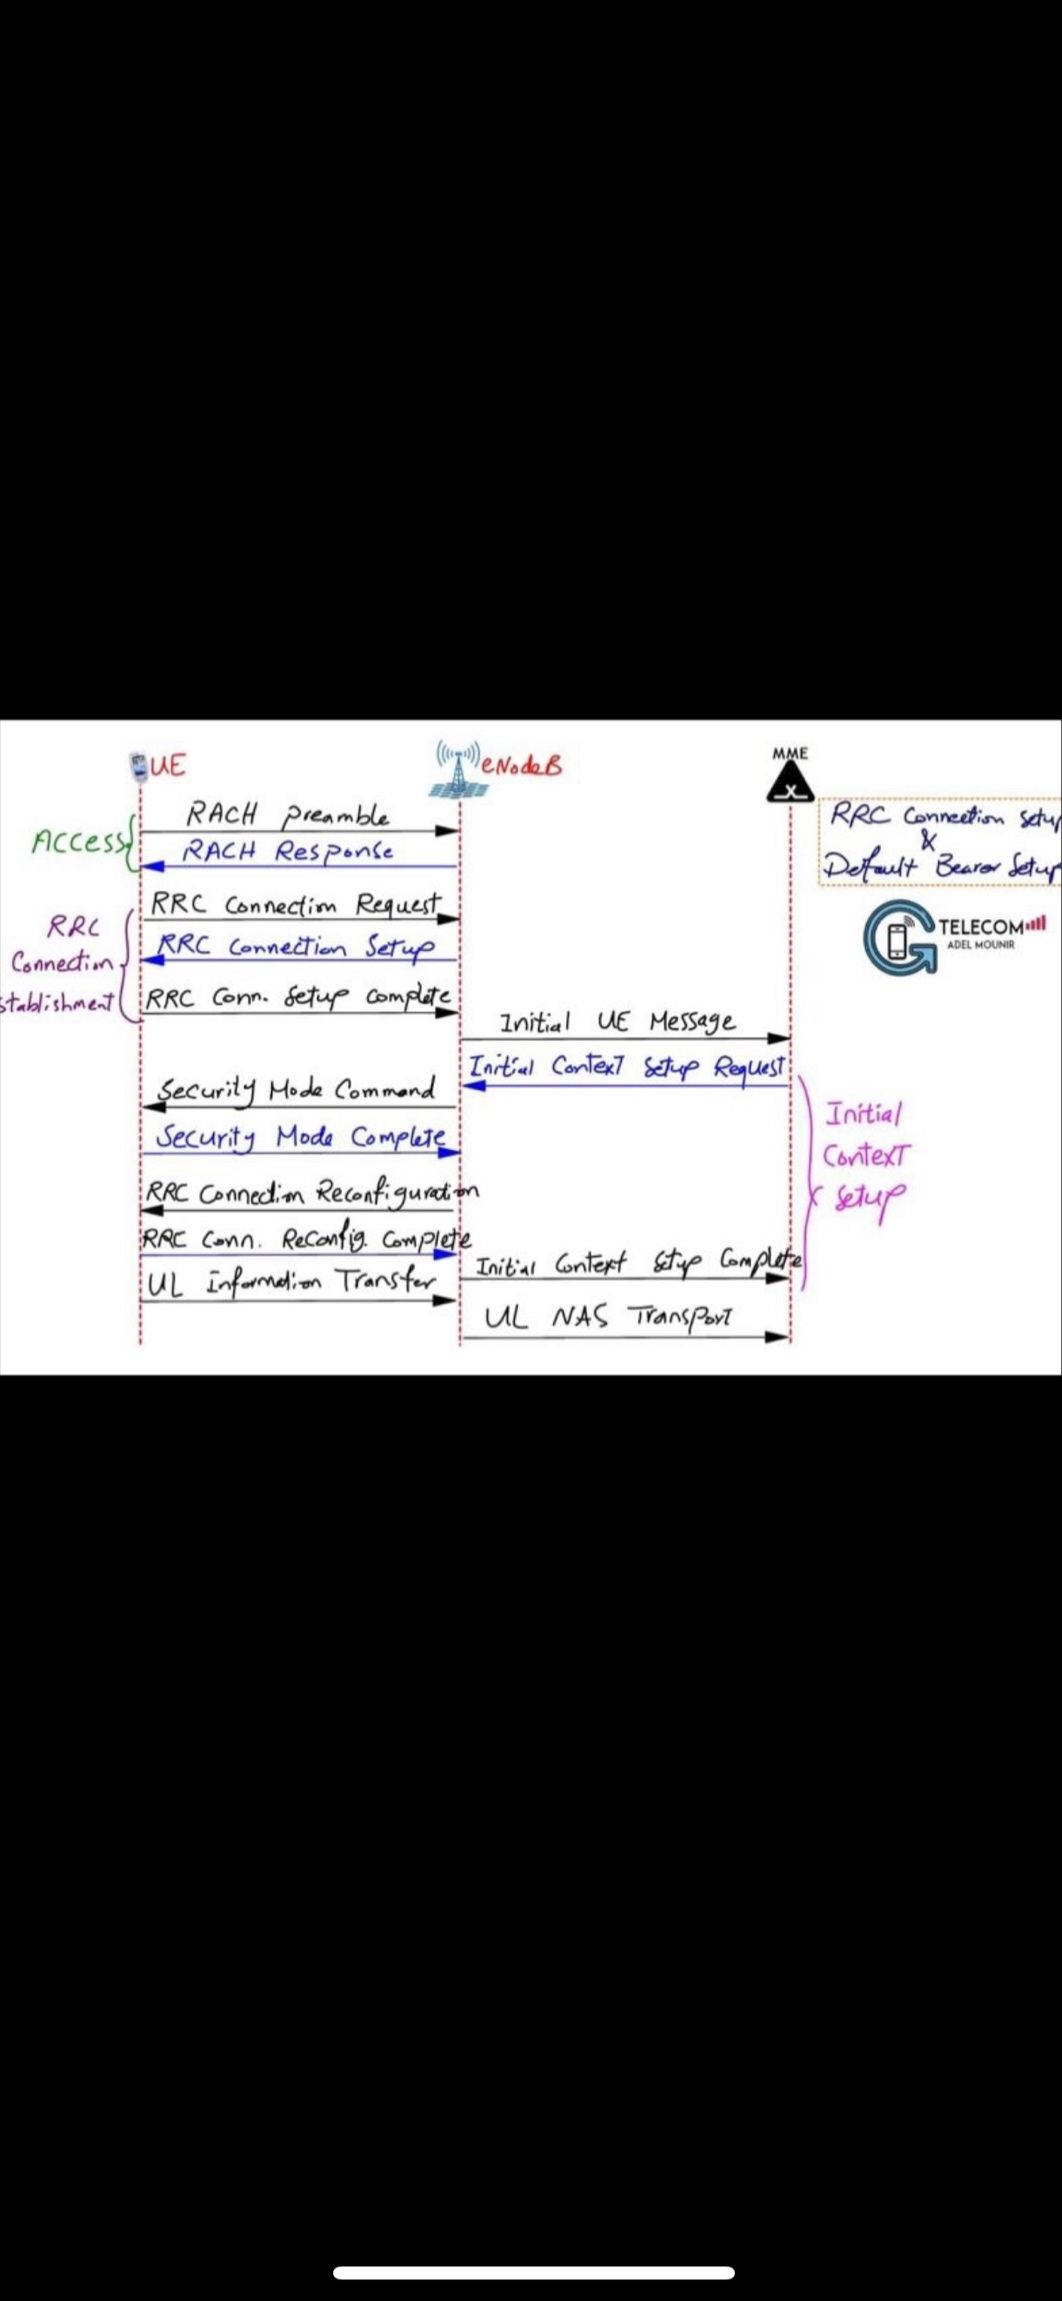 UE
eNodeB
MME
RACH Preamble
RACH Response
Access
RRC Connection Setup
&
Default Bearer Setup
TELECOM
ADEL MOUNIR
RRC Connection Request
RRC Connection Setup
RRC Conn. Setup Complete
RRC
Connection
stablishment
Initial UE Message
Initial Context Setup Request
Security Mode Command
Security Mode Complete
Initial
Context
Setup
RRC Connection Reconfiguration
RRC Conn. Reconfig. Complete
Initial Context Setup Complete
UL Information Transfer
UL NAS Transport